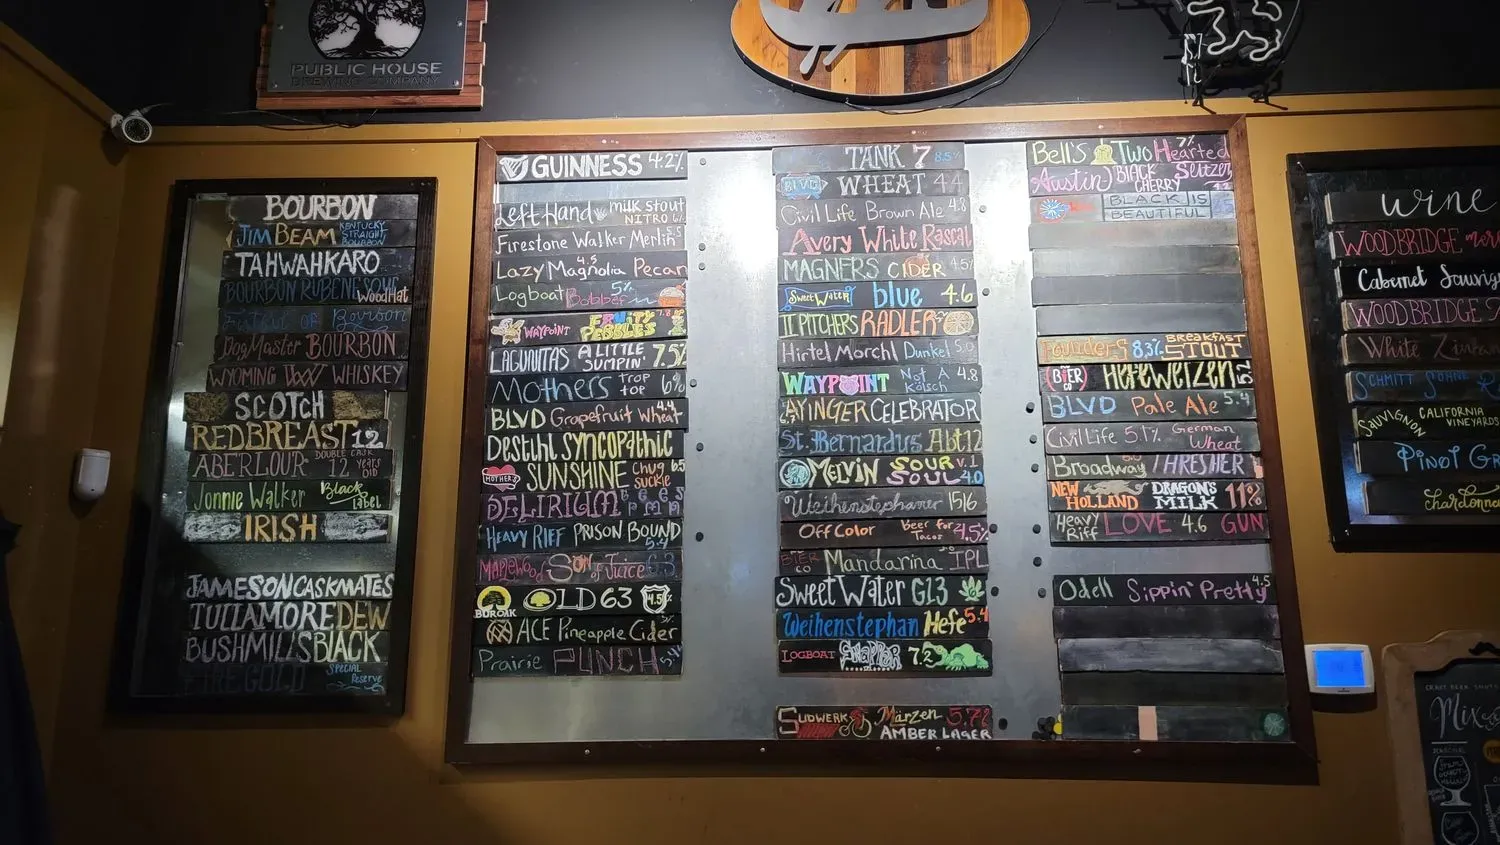 PUBLIC HOUSE
BREWING COMPANY
BOURBON
JIM BEAM KENTUCKY STRAIGHT BOURBON
TAHWAHKARO
BOURBON RUBENESQUE WoodHat
Bourbon
DogMaster BOURBON
WYOMING WHISKEY
SCOTCH
REDBREAST 12
ABERLOUR DOUBLE CASK 12 YEARS OLD
Jonnie Walker Black Label
IRISH
JAMESON CASKMATES
TULLAMORE DEW
BUSHMILLS BLACK
FIREGOLD SPECIAL Reserve
GUINNESS 4.2%
Left Hand milk stout NITRO 6%
Firestone Walker Merlin 5.5
Lazy Magnolia Pecan 4.5
Logboat Bobber 5%
WAYPOINT FRUITY PEBBLES
LAGUNITAS A LITTLE SUMPIN' 7.5%
Mothers Trop top 6%
BLVD Grapefruit Wheat 4.4
Destihl SYNCOPATHIC
MOTHER'S SUNSHINE Chug suckle 6.5
DELIRIUM
HEAVY RIFF PRISON BOUND 5.4
MAPLEWOOD SON of JUICE 6.3
BUR OAK OLD 63 4.5%
ACE Pineapple Cider
Prairie PUNCH 5.4
TANK 7 8.5%
BLVD WHEAT 4.4
Civil Life Brown Ale 4.8
Avery White Rascal
MAGNERS CIDER 4.5%
Sweet Water blue 4.6
II PITCHERS RADLER
Hirtel Morchl Dunkel 5.0
WAYPOINT Not A Kölsch 4.8
AYINGER CELEBRATOR 6.7
St. Bernardus Abt 12
MELVIN SOUR v.1 SOUL 4.0
Weihenstephaner 1516
Off Color Beer for Tacos 4.5%
BIER CO Mandarina IPL
SWEET WATER G13
Weihenstephan Hefe 5.4
LOGBOAT SNAPPER 7.2
SUDWERK Märzen 5.7%
AMBER LAGER
Bell's Two Hearted 7%
Austin BLACK CHERRY Seltzer
BLACK IS BEAUTIFUL
Founders 8.3% BREAKFAST STOUT
BIER CO HEFEWEIZEN 5.2
BLVD Pale Ale 5.4
Civil Life 5.1% German Wheat
Broadway THRESHER
NEW HOLLAND DRAGON'S MILK 11%
Heavy Riff LOVE 4.6 GUN
Odell Sippin' Pretty 4.5
wine
WOODBRIDGE
Cabernet
WOODBRIDGE
White
SCHMITT SÖHNE
SAUVIGNON CALIFORNIA VINEYARDS
PINOT
Chardonnay